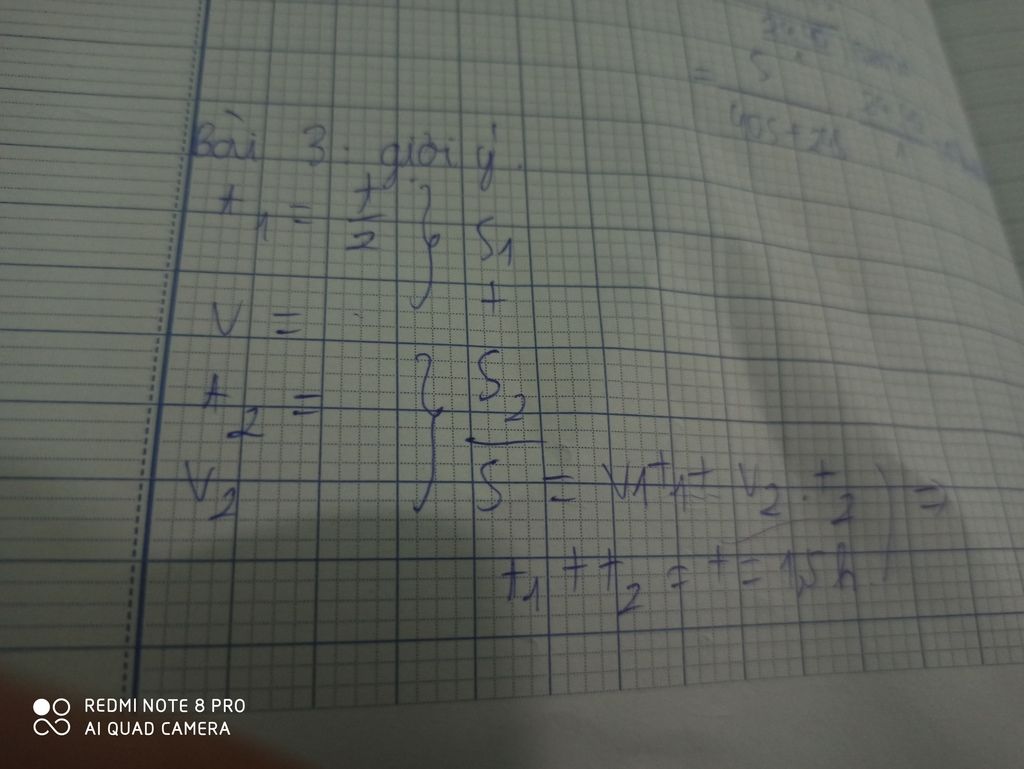 Bài 3. giới ý.
t₁ = t/2 } S₁
+
V =
t₂ = } S₂
V₂ S = V₁t₁ + V₂.t₂ ) ⇒
t₁ + t₂ = t = 1,5h
REDMI NOTE 8 PRO
AI QUAD CAMERA